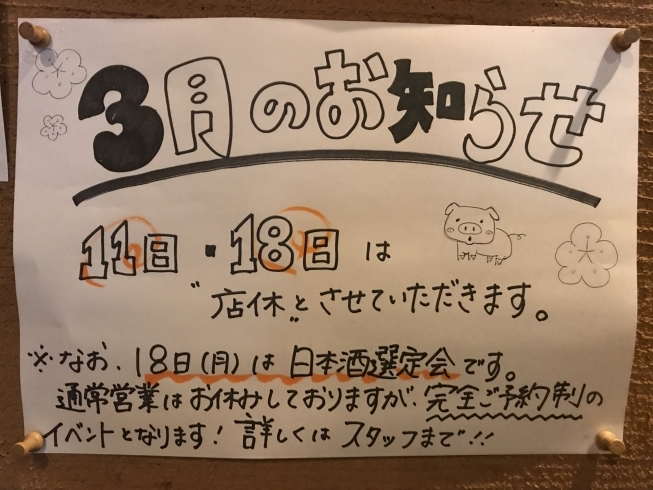 3月のお知らせ
11日・18日は
"店休"とさせていただきます。
※なお、18日(月)は日本酒選定会です。
通常営業はお休みしておりますが、完全ご予約制の
イベントとなります! 詳しくはスタッフまで!!